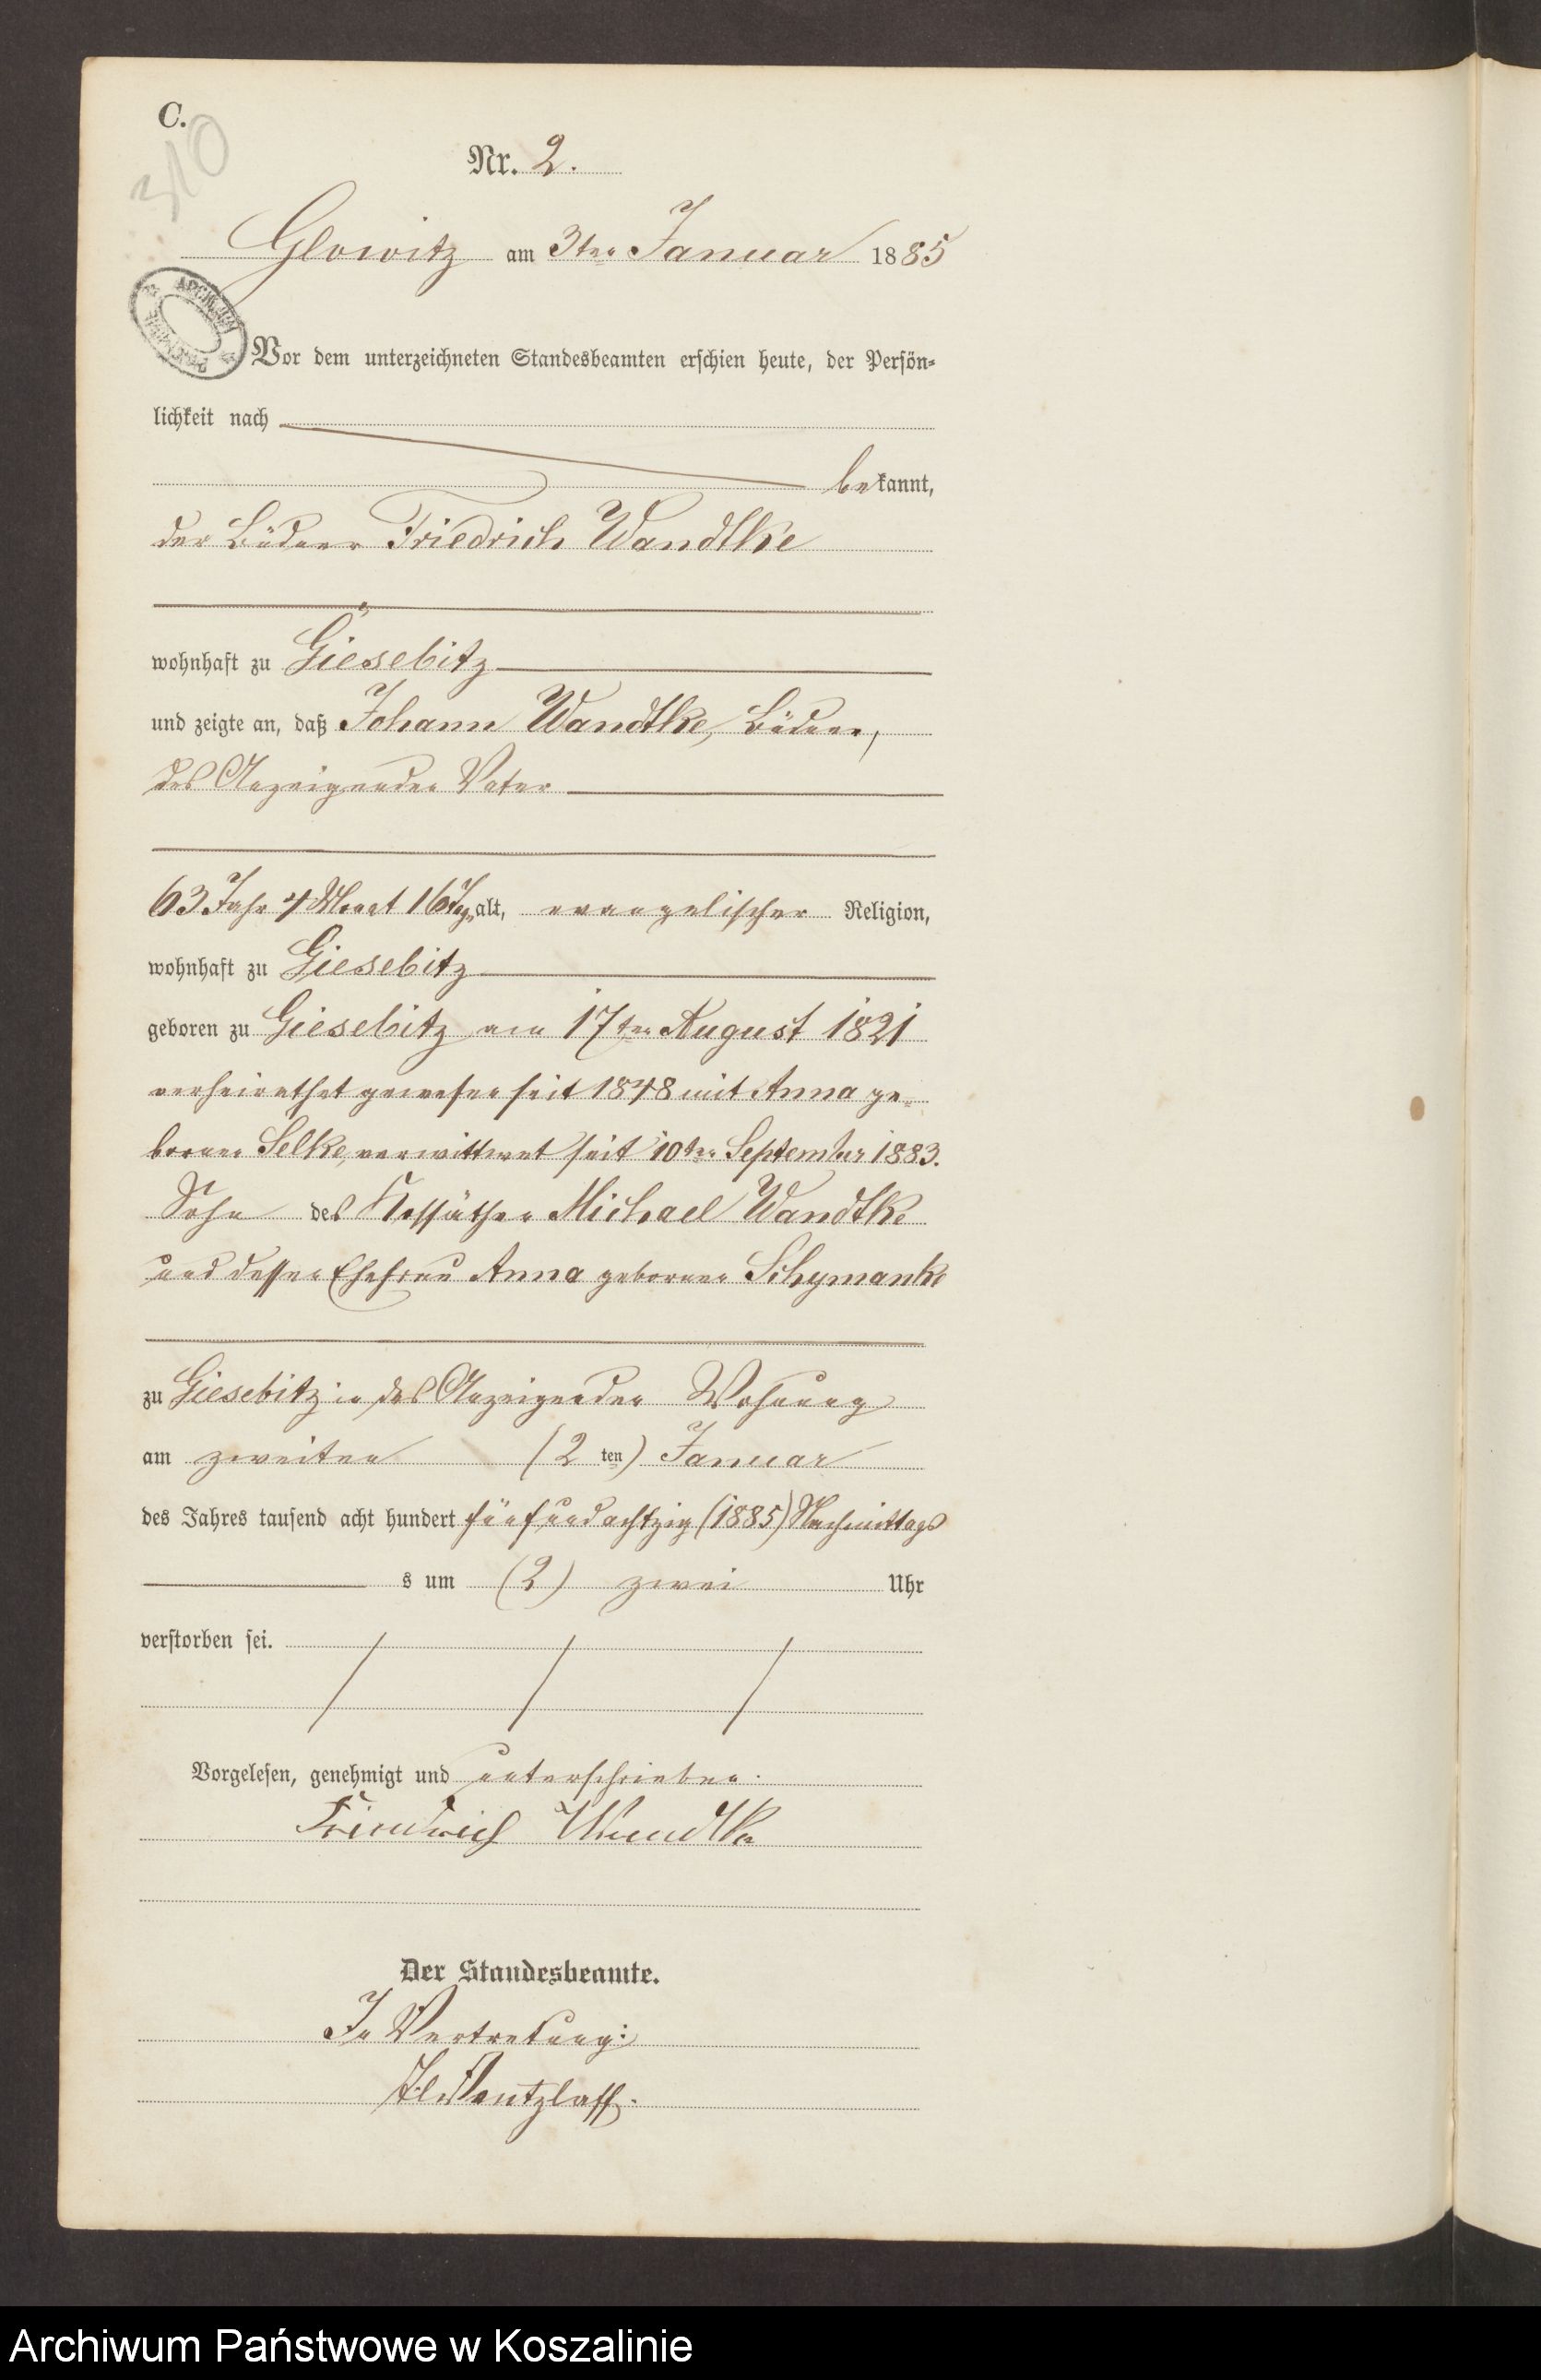 C.
310
Nr. 2.
Glowitz am 3ten Januar 1885
Vor dem unterzeichneten Standesbeamten erschien heute, der Persön-
lichkeit nach
bekannt,
der Büdner Friedrich Wandtke
wohnhaft zu Giesebitz
und zeigte an, daß Johann Wandtke, Büdner,
des Anzeigenden Vater
63 Jahr 4 Monat 16 Tag alt, evangelischer Religion,
wohnhaft zu Giesebitz
geboren zu Giesebitz am 17ten August 1821
verheirathet gewesen seit 1848 mit Anna ge-
borenen Selke, verwittwet seit 10ten September 1883.
Sohn des Kossäthen Michael Wandtke
und dessen Ehefrau Anna geborenen Schymanke
zu Giesebitz in des Anzeigenden Wohnung
am zweiten (2 ten) Januar
des Jahres tausend acht hundert fünfundachtzig (1885) Nachmittags
s um (2) zwei Uhr
verstorben sei.
Vorgelesen, genehmigt und unterschrieben.
Friedrich Wandtke
Der Standesbeamte.
In Vertretung:
Wentzlaff.
Archiwum Państwowe w Koszalinie